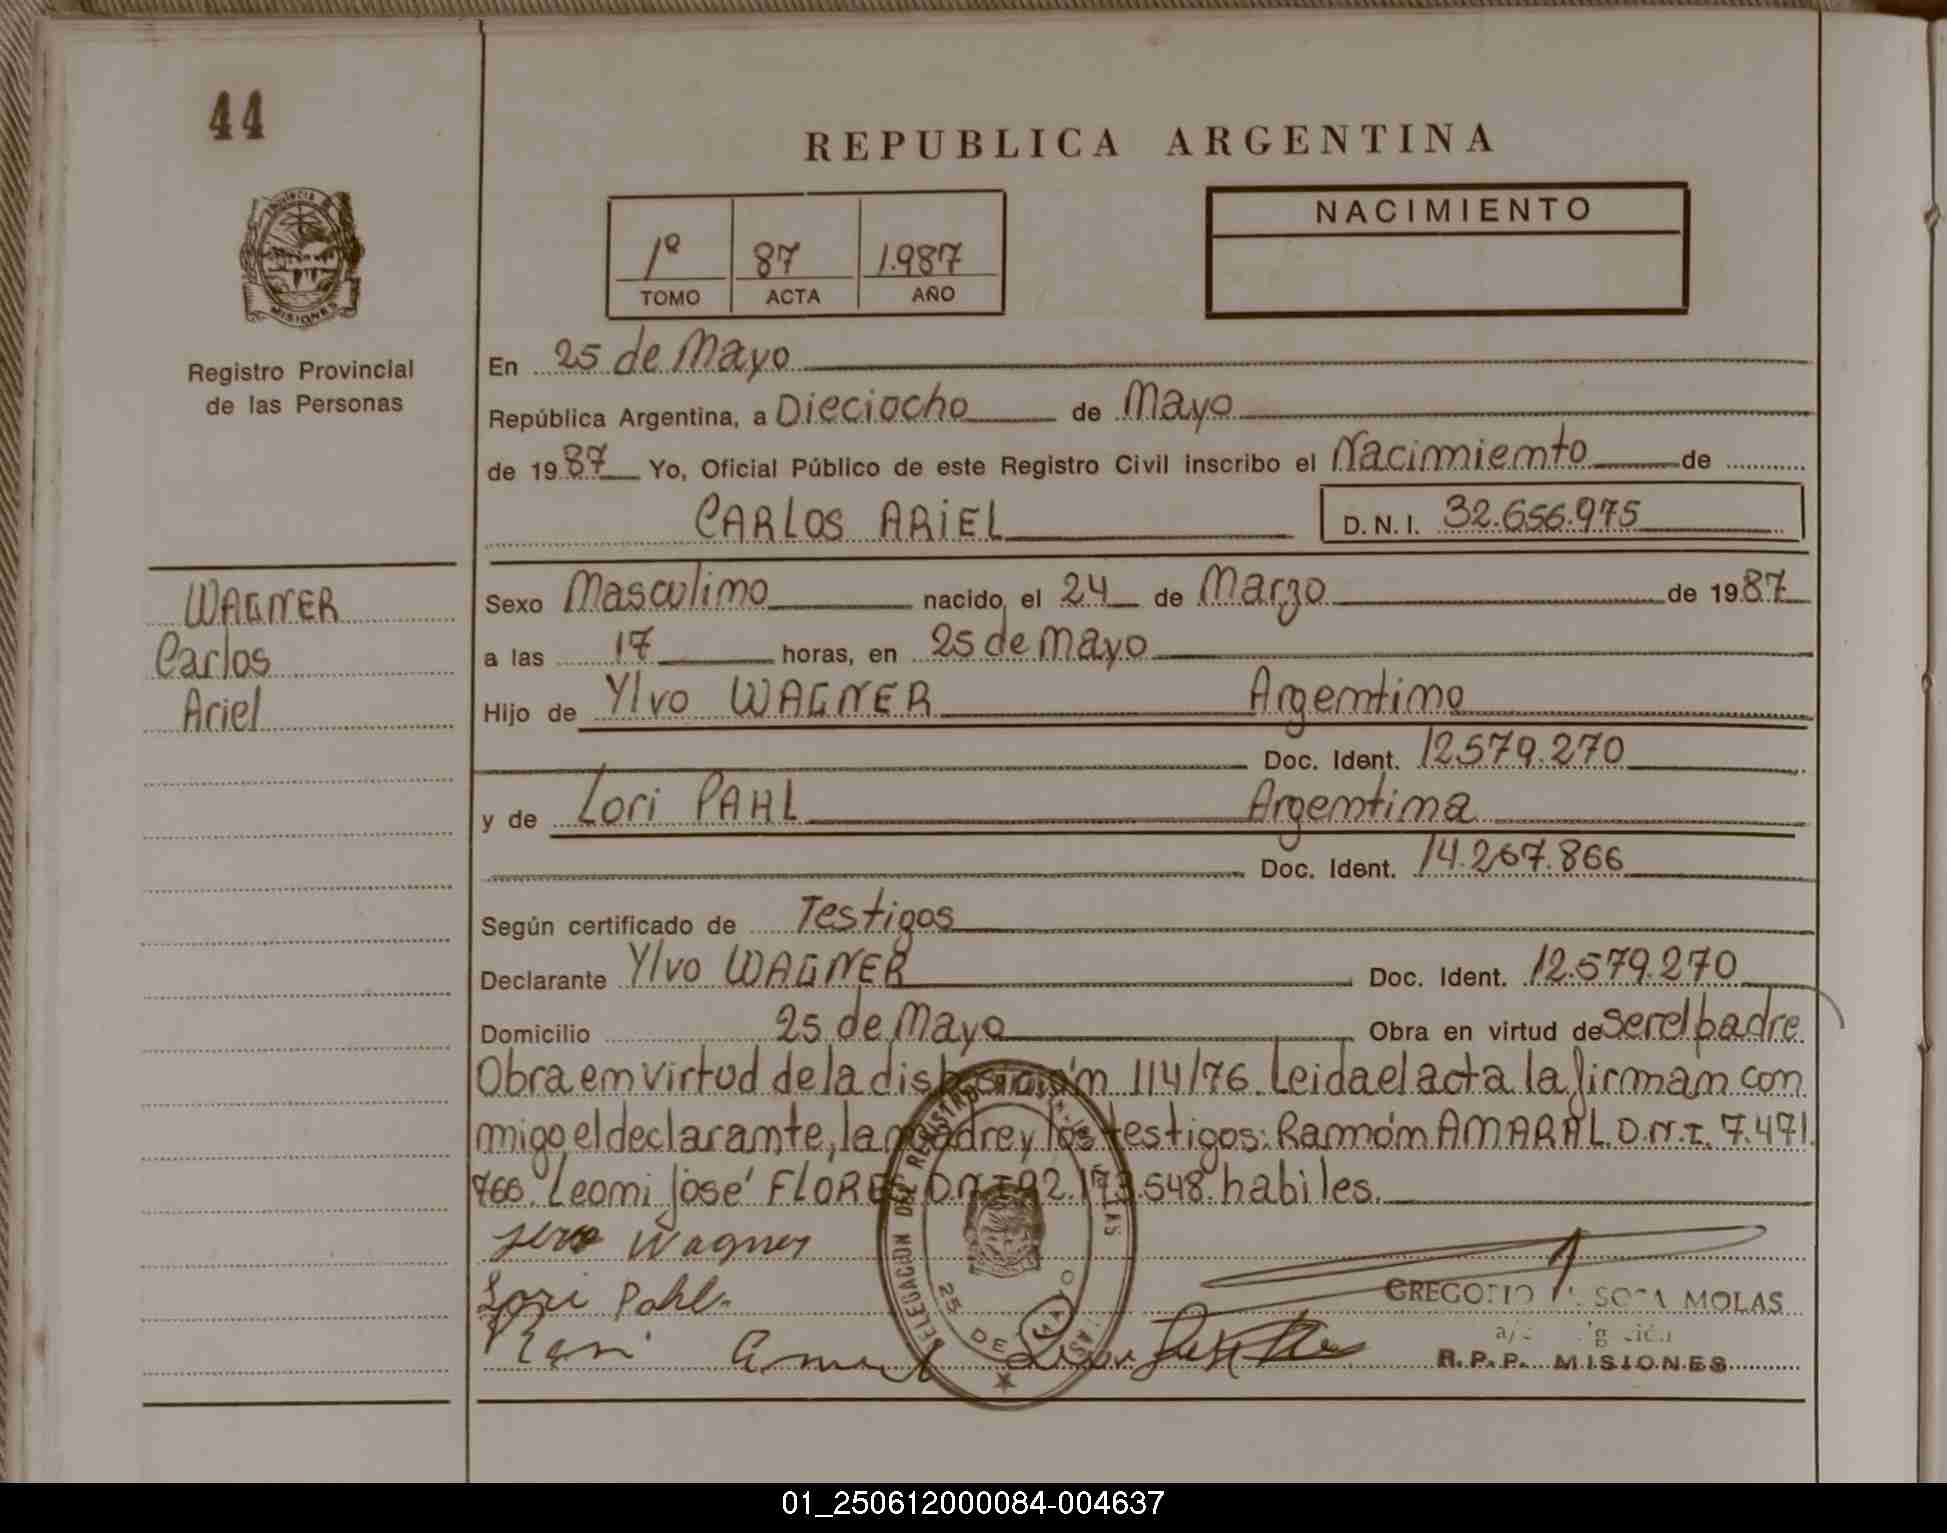 44
REPUBLICA ARGENTINA
PROVINCIA DE
MISIONES
1º 87 1.987
TOMO ACTA AÑO
NACIMIENTO
Registro Provincial
de las Personas
En 25 de Mayo
República Argentina, a Dieciocho de Mayo
de 1987 Yo, Oficial Público de este Registro Civil inscribo el Nacimiento de
CARLOS ARIEL D.N.I. 32.656.975
WAGNER
Carlos
Ariel
Sexo Masculino nacido el 24 de Marzo de 1987
a las 17 horas, en 25 de Mayo
Hijo de Ylvo WAGNER Argentino
Doc. Ident. 12.579.270
y de Lori PAHL Argentina
Doc. Ident. 14.267.866
Según certificado de Testigos
Declarante Ylvo WAGNER Doc. Ident. 12.579.270
Domicilio 25 de Mayo Obra en virtud de ser el padre
Obra en virtud de la disposición 114/76. Leida el acta la firman con
migo el declarante, la madre y los testigos: Ramón AMARAL D.N.I. 7.471.
766. Leoni José FLORES D.N.I. 548. habiles.
Wagner
Lori Pahl
GREGORIO SOSA MOLAS
R.P.P. MISIONES
DELEGACION DEL REGISTRO
25 DE MAYO
01_250612000084-004637